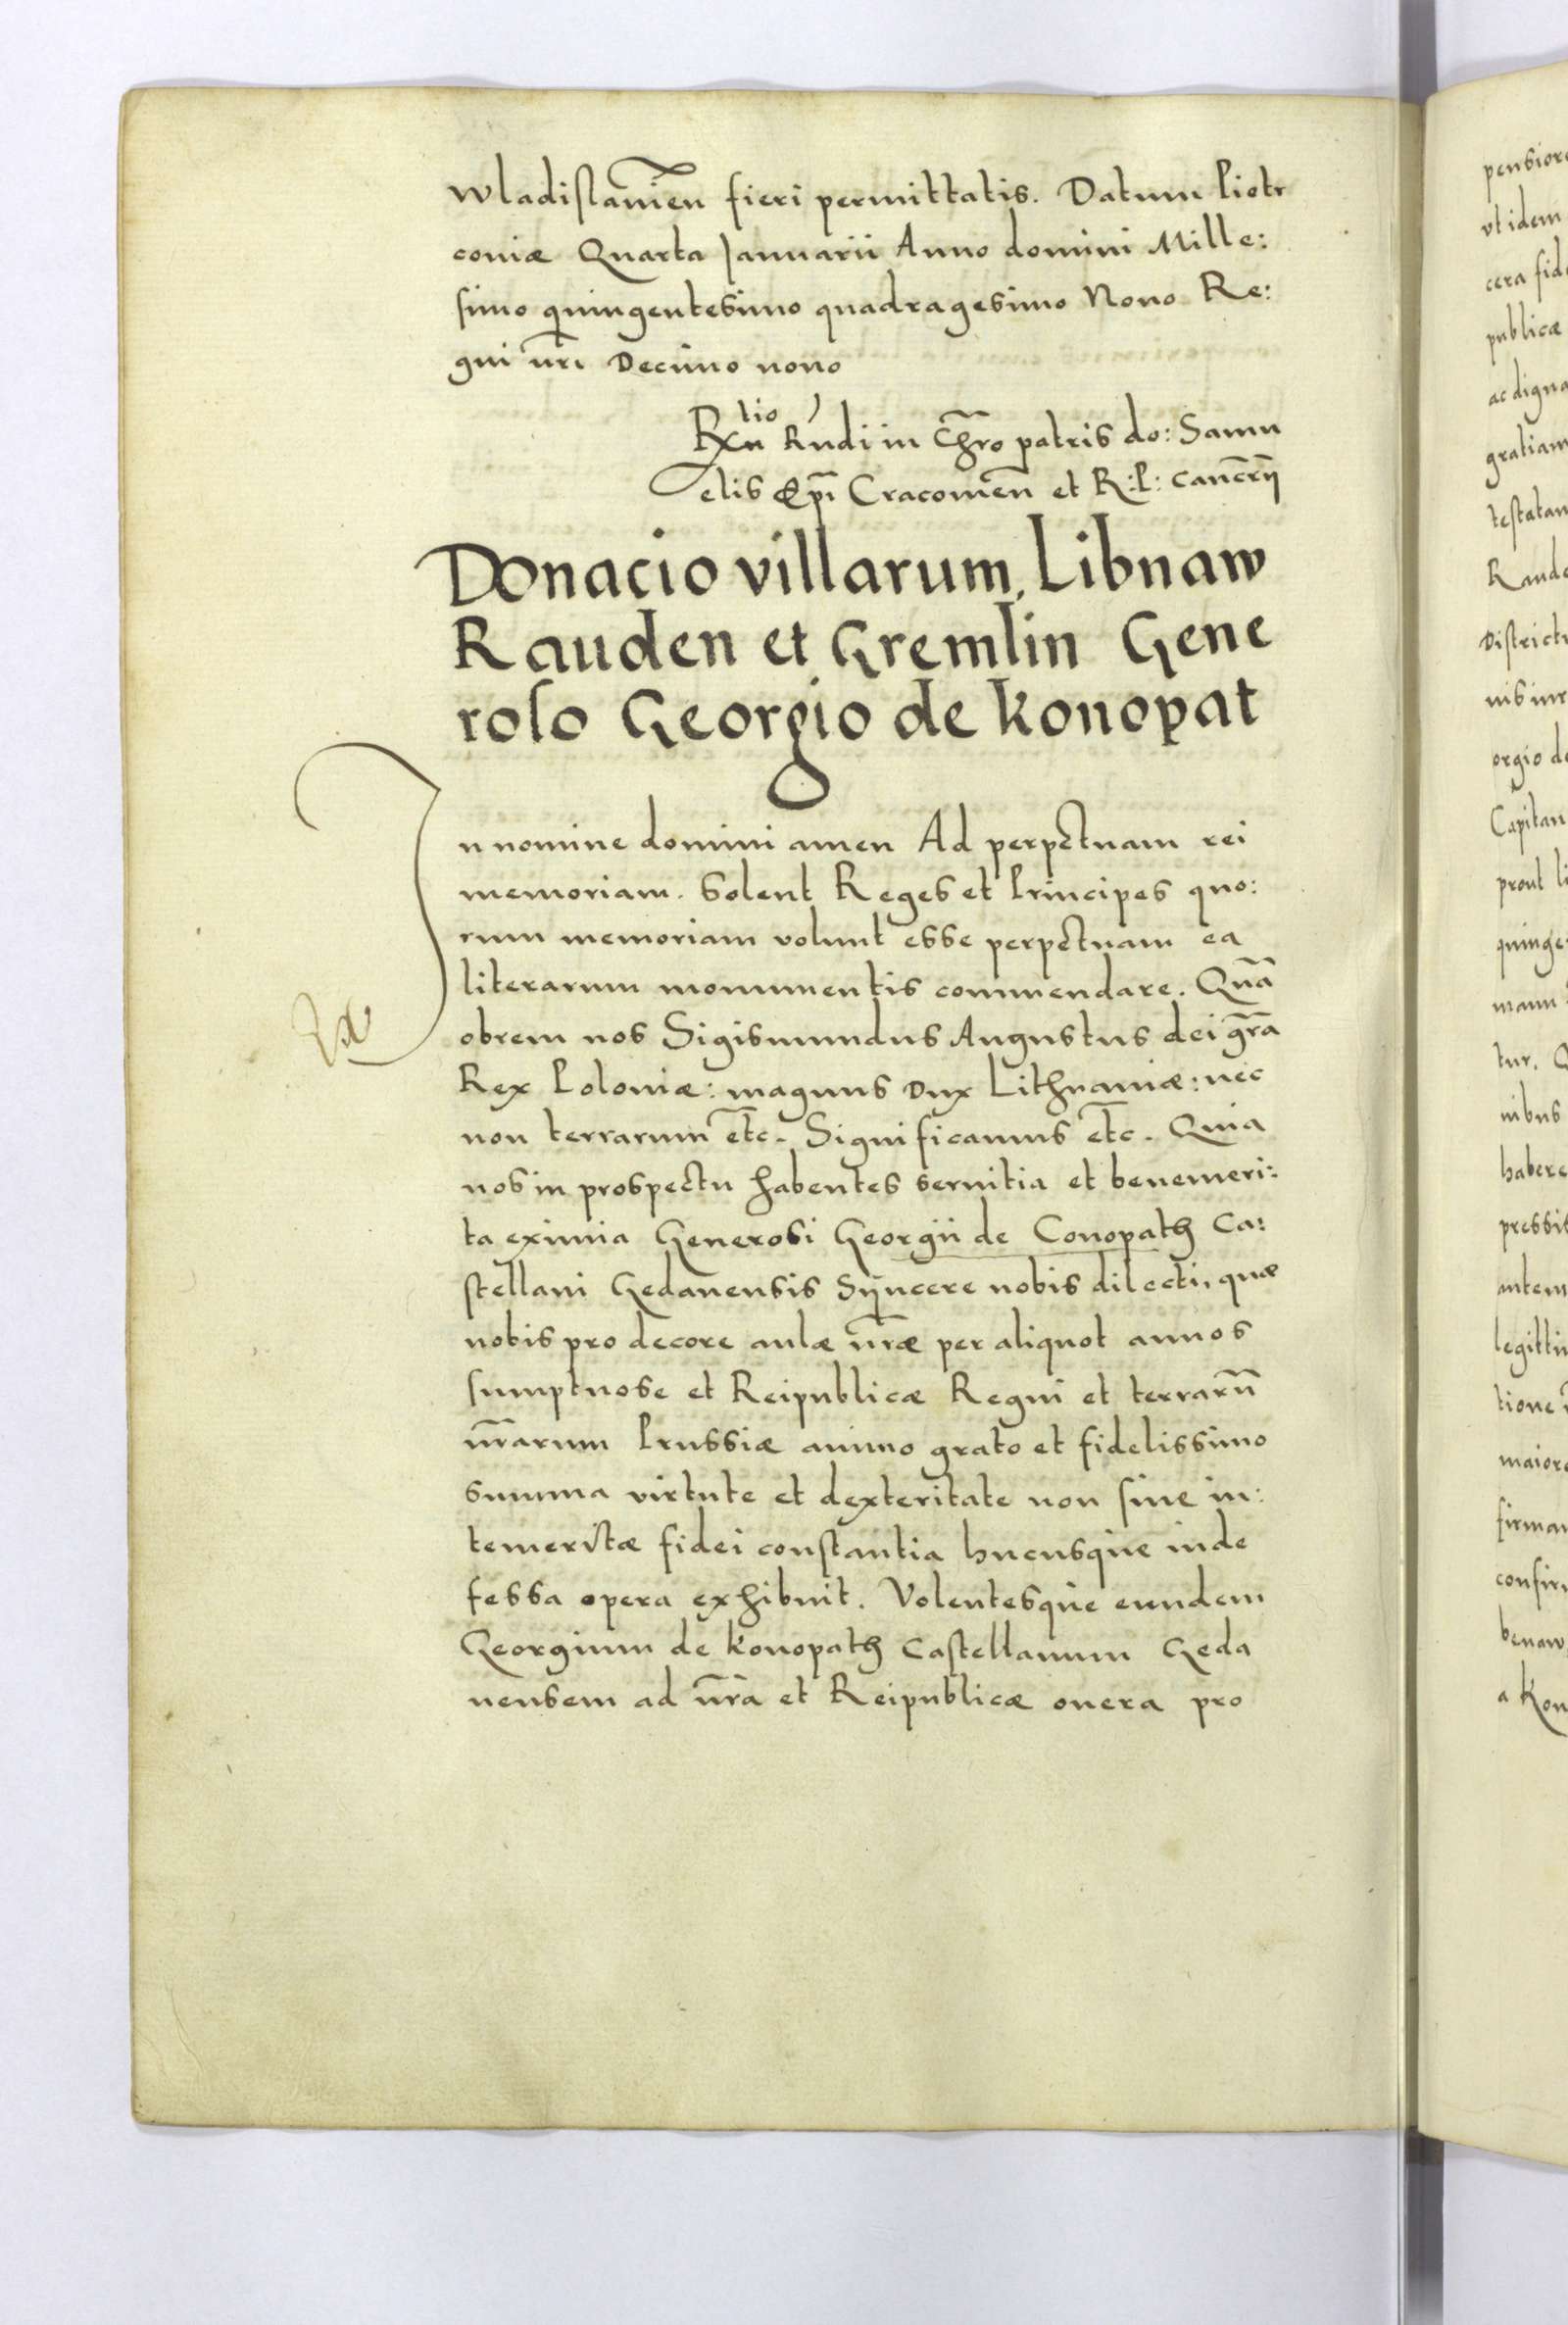 Wladislauien̄ fieri permittatis. Datum Piotr
couiæ Quarta Januarii Anno domini Mille:
simo quingentesimo quadragesimo Nono Re:
gni nr̄i Decimo nono
Rxntio Rndi in Chro patris do: Samu
elis Ep̄i Cracouien̄ et R: P: Canc̄rij
Donacio villarum, Libnaw
Rauden et Gremlin Gene
roso Georgio de Konopat
In nomine domini amen Ad perpetuam rei
memoriam. Solent Reges et Principes quo:
rum memoriam volunt esse perpetuam ea
literarum monumentis commendare. Quā
obrem nos Sigismundus Augustus dei gr̄a
Rex Poloniæ: magnus Dux Lithuaniæ: nec
non terrarum etc̄. Significamus etc̄. Quia
nos in prospectu habentes seruitia et benemeri:
ta eximia Generosi Georgii de Conopath Ca:
stellani Gedanensis Sÿncere nobis dilecti, quæ
nobis pro decore aulæ nr̄æ per aliquot annos
sumptuose et Reipublicæ Regni et terrarū
nr̄arum Prussiæ animo grato et fidelissimo
summa virtute et dexteritate non sine in:
temeratæ fidei constantia hucusque inde
fessa opera exhibuit. Volentesque eundem
Georgium de Konopath Castellanum Geda
nensem ad nr̄a et Reipublicæ onera pro
pensiore
vt idem
cera fid
publicæ
ac digna
gratiam
testatam
Raude
Districtu
nis
orgio de
Capitan
prout li
quinge
manu
tur. Q
nibus
habere
pressis
autem
legitti
tione
maiore
firmam
confir
benaw
a Kon